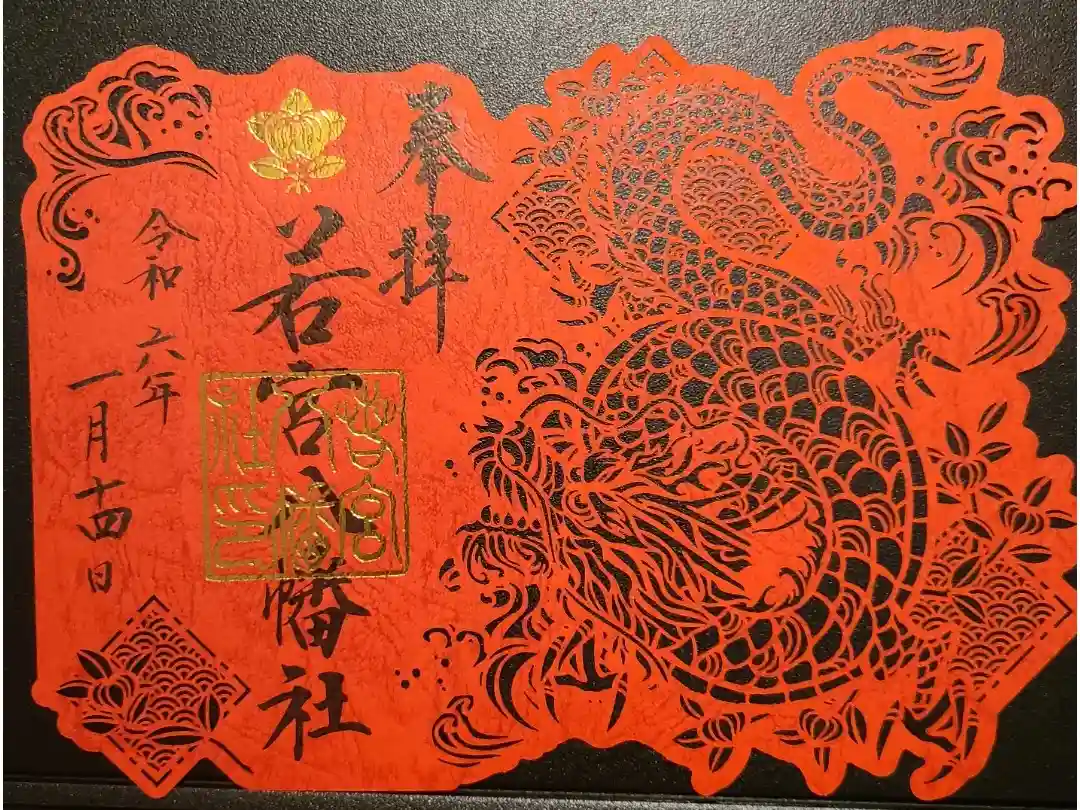 奉拝
若宮八幡社
若宮
八幡
社印
令和六年
一月十四日